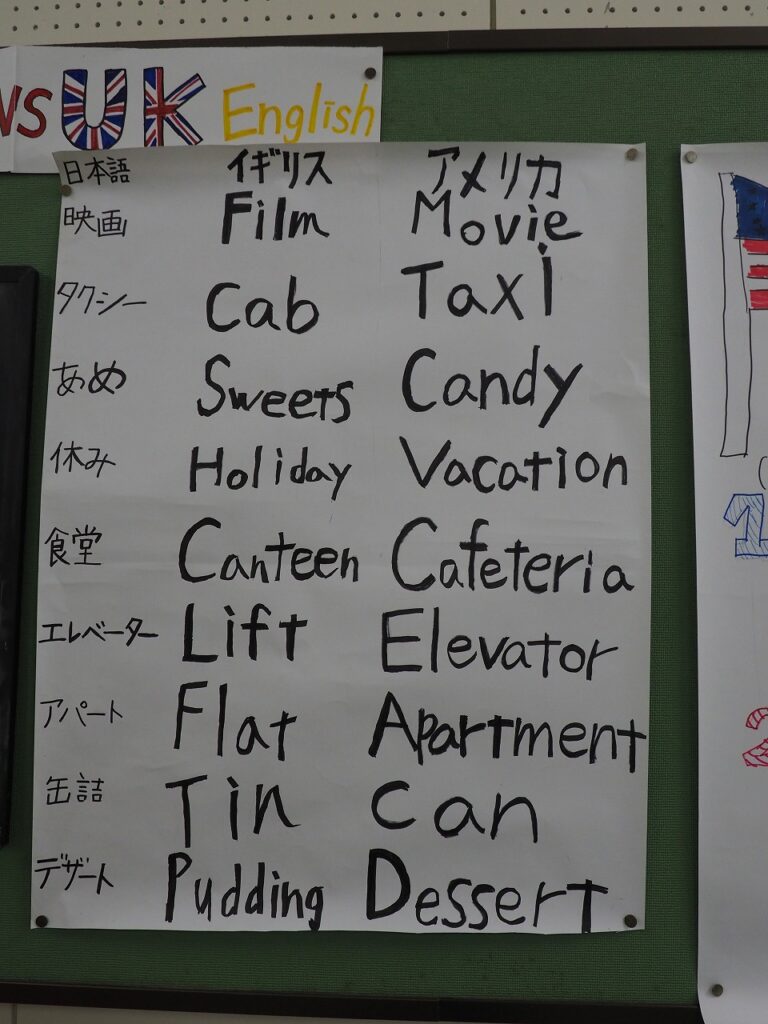 UK English
日本語 イギリス アメリカ
映画 Film Movie
タクシー Cab Taxi
あめ Sweets Candy
休み Holiday Vacation
食堂 Canteen Cafeteria
エレベーター Lift Elevator
アパート Flat Apartment
缶詰 Tin can
デザート Pudding Dessert
1
2